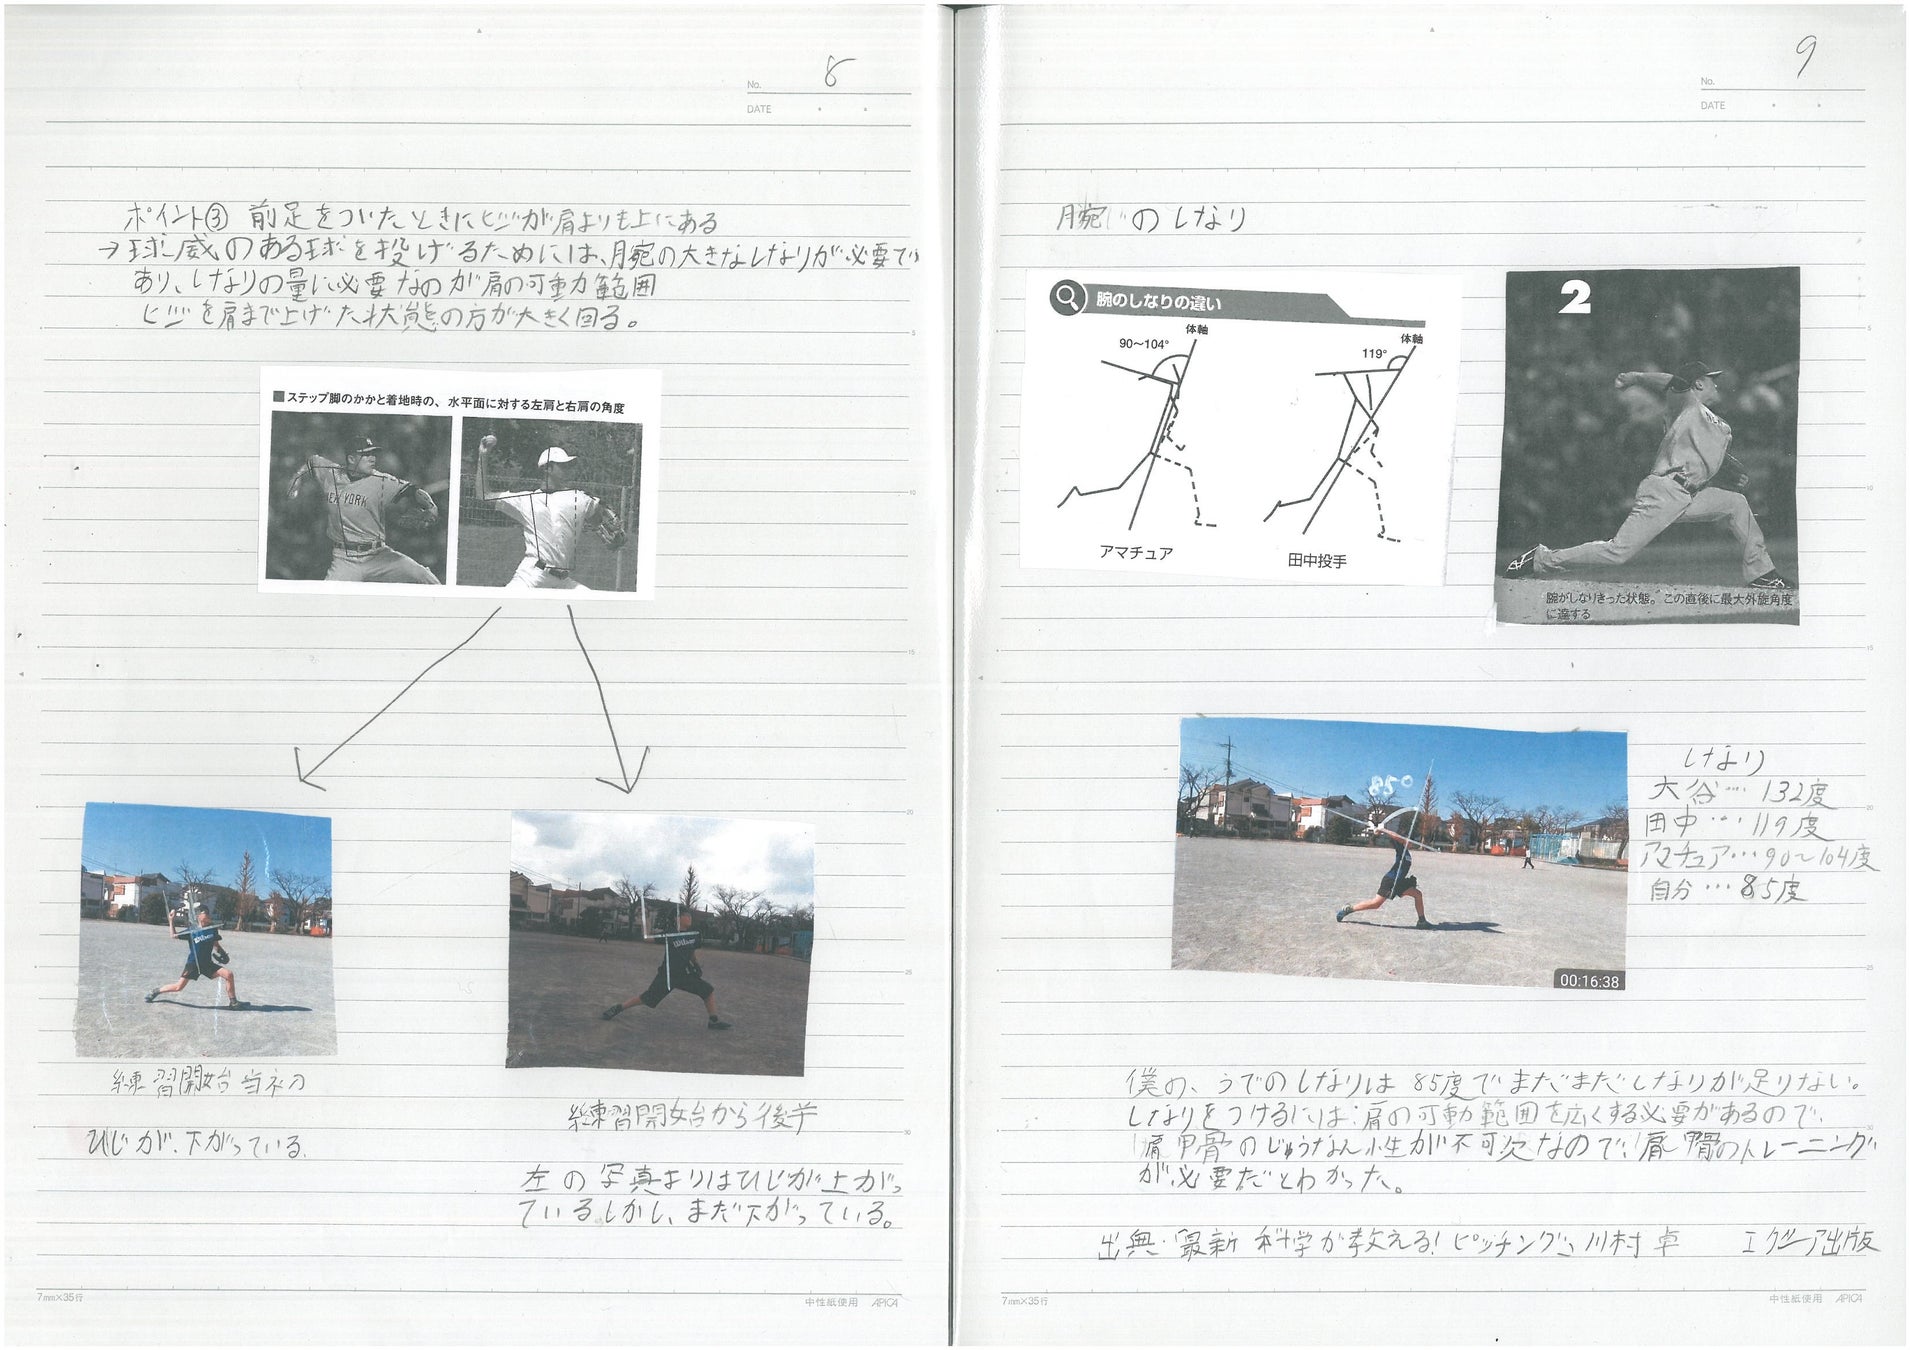 No. 8
DATE
ポイント③ 前足をついたときにヒジが肩よりも上にある
→球威のある球を投げるためには、腕の大きなしなりが必要で
あり、しなりの量に必要なのが肩の可動範囲
ヒジを肩まで上げた状態の方が大きく回る。
■ステップ脚のかかと着地時の、水平面に対する左肩と右肩の角度
NEW YORK
Wilson
Wilson
練習開始当初
ひじが、下がっている。
練習開始から後半
左の写真よりはひじが上がっ
ているしかし、まだ下がっている。
7mm×35行
中性紙使用 APICA
No. 9
DATE
腕のしなり
腕のしなりの違い
90〜104°
体軸
アマチュア
119°
体軸
田中投手
2
腕がしなりきった状態。この直後に最大外旋角度
に達する
85°
00:16:38
しなり
大谷…132度
田中…119度
アマチュア…90〜104度
自分…85度
僕の、うでのしなりは85度でまだまだしなりが足りない。
しなりをつけるには、肩の可動範囲を広くする必要があるので、
肩甲骨のじゅうなん性が不可欠なので、肩甲骨のトレーニング
が必要だとわかった。
出典:最新 科学が教える!ピッチング、川村 卓 エクシア出版
7mm×35行
中性紙使用 APICA